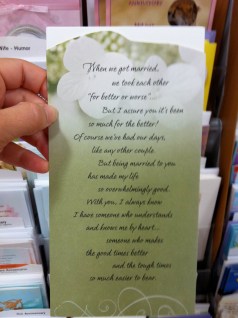 Wife - Humor
When we got married,
we took each other
"for better or worse"...
But I assure you it's been
so much for the better!
Of course we've had our days,
like any other couple.
But being married to you
has made my life
so overwhelmingly good.
With you, I always know
I have someone who understands
and knows me by heart...
someone who makes
the good times better
and the tough times
so much easier to bear.